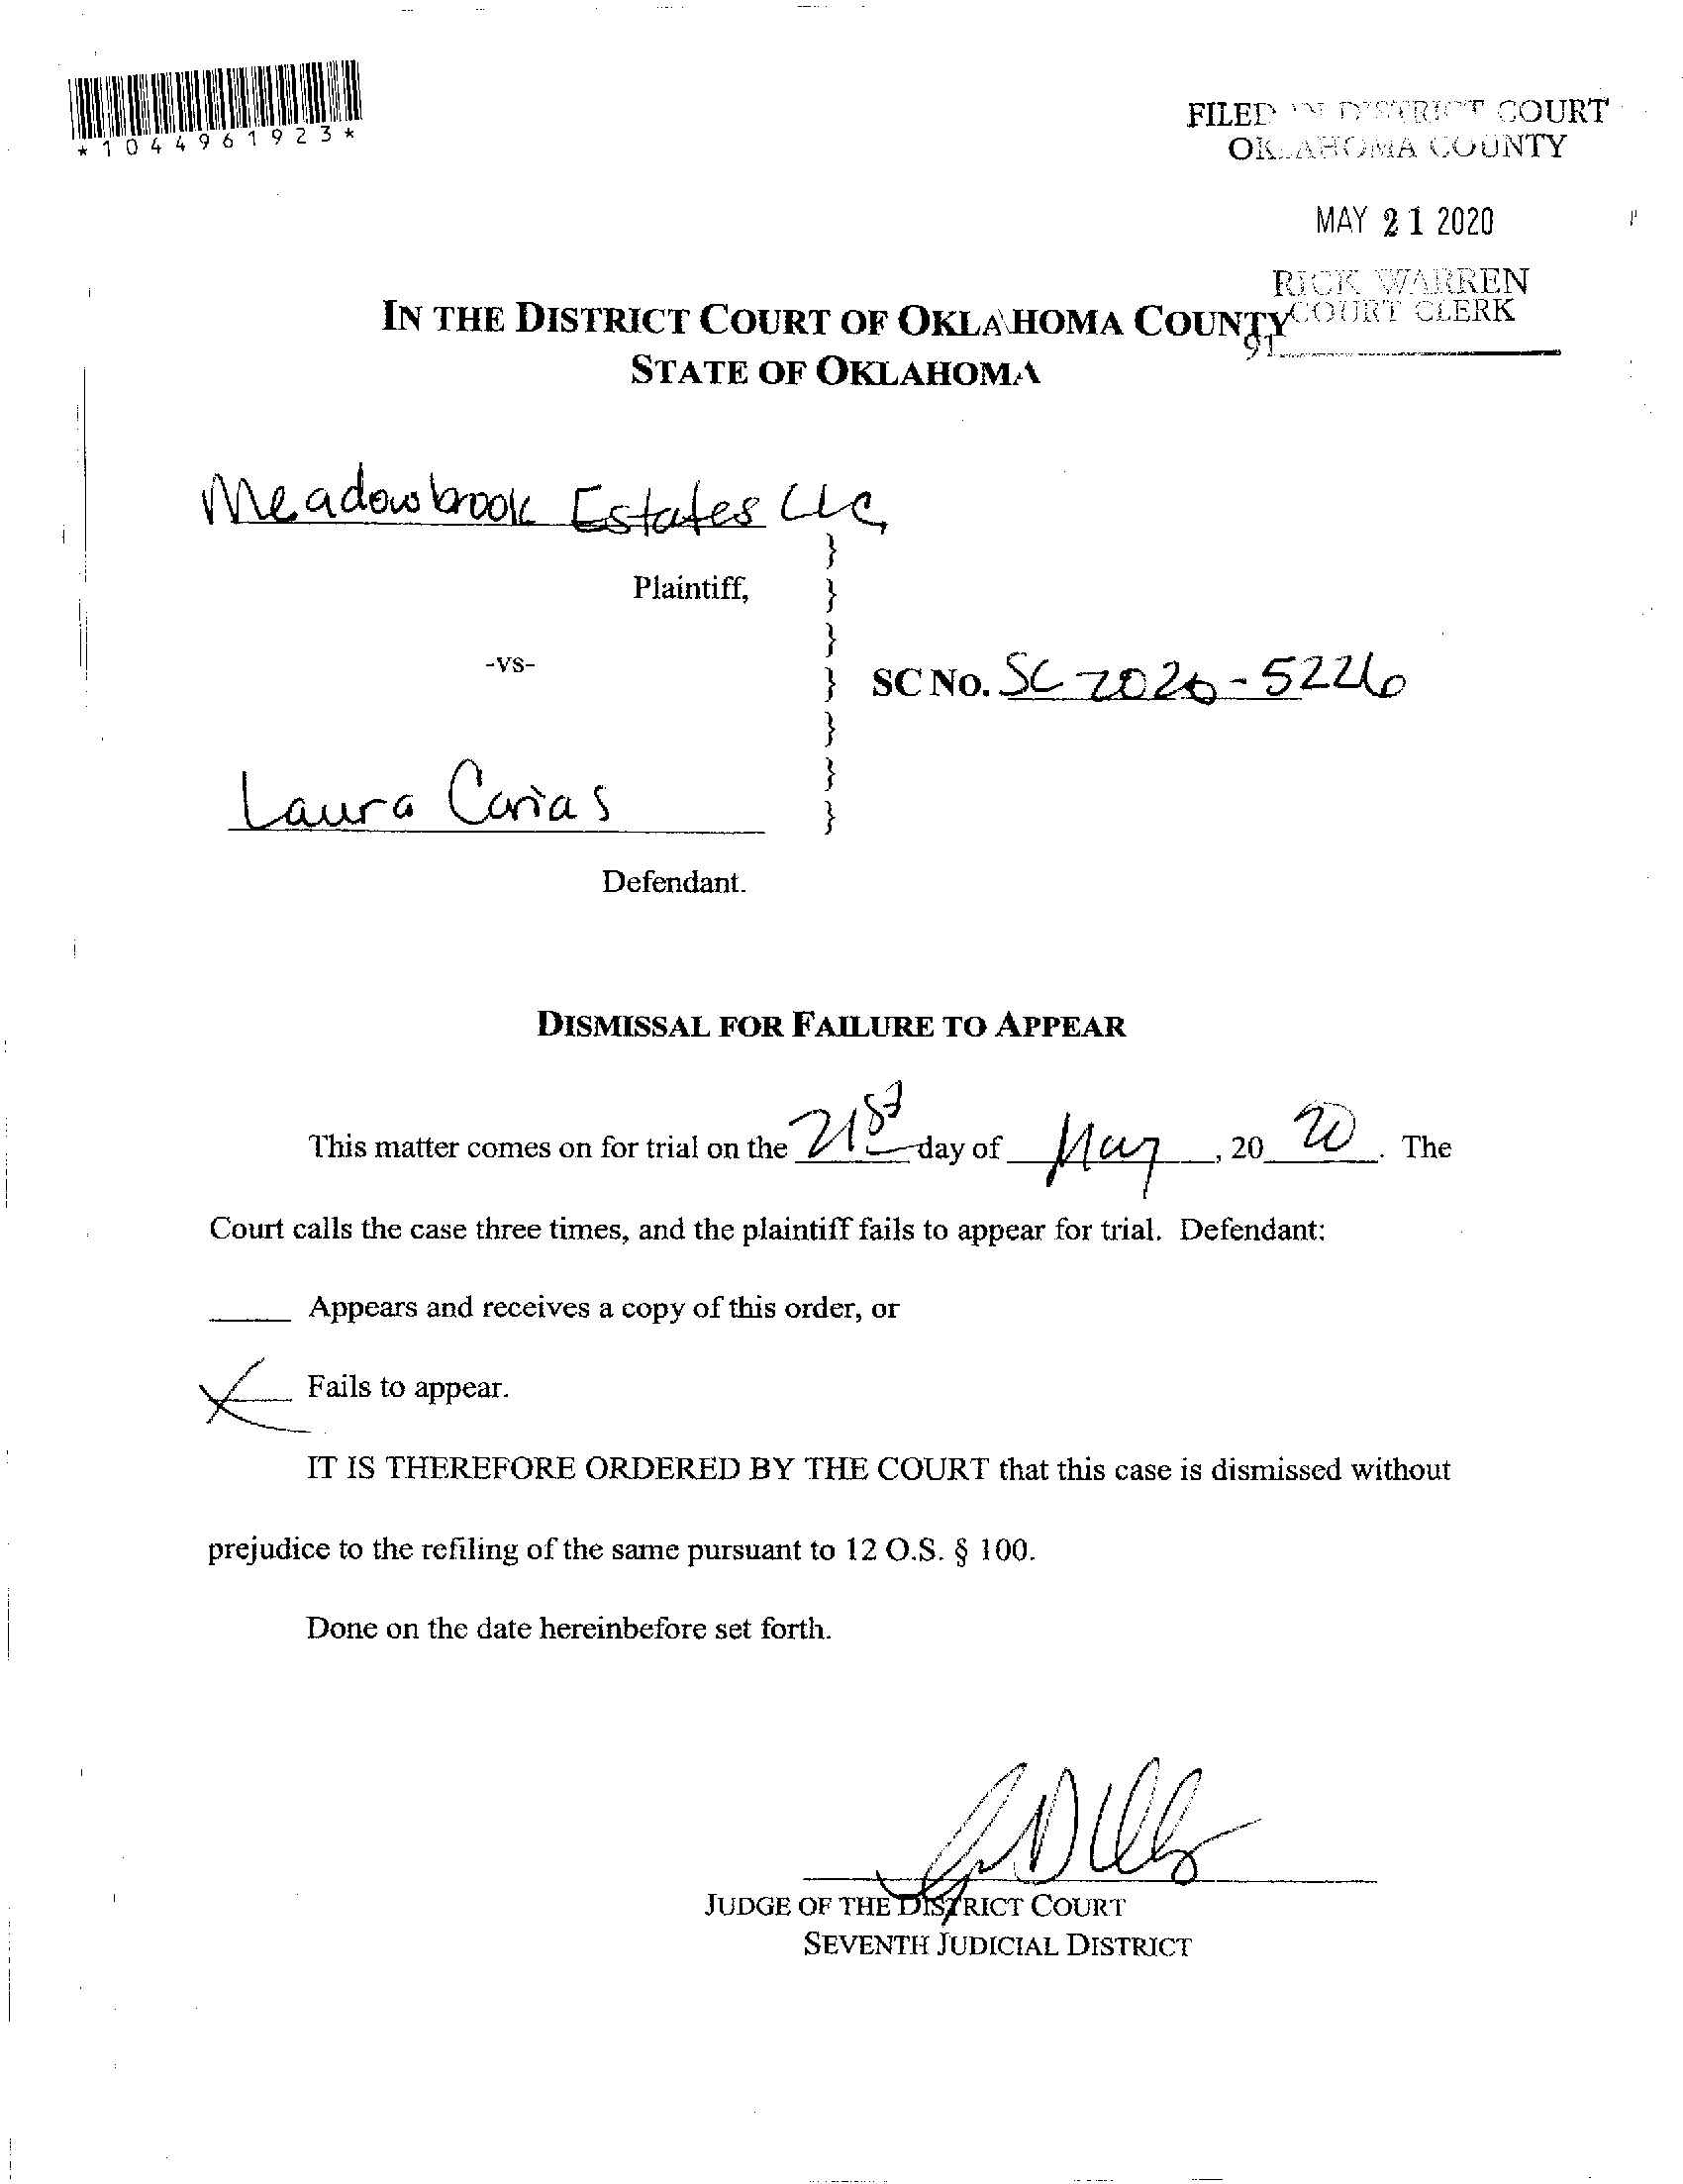 *1044961923*
FILED IN DISTRICT COURT
OKLAHOMA COUNTY
MAY 21 2020
RICK WARREN
COURT CLERK
91
IN THE DISTRICT COURT OF OKLAHOMA COUNTY
STATE OF OKLAHOMA
Meadowbrook Estates LLC,
Plaintiff,
-vs-
SC No. SC 2020-5226
Laura Carias
Defendant.
DISMISSAL FOR FAILURE TO APPEAR
This matter comes on for trial on the 21st day of May, 2020. The
Court calls the case three times, and the plaintiff fails to appear for trial. Defendant:
____ Appears and receives a copy of this order, or
X Fails to appear.
IT IS THEREFORE ORDERED BY THE COURT that this case is dismissed without
prejudice to the refiling of the same pursuant to 12 O.S. § 100.
Done on the date hereinbefore set forth.
JUDGE OF THE DISTRICT COURT
SEVENTH JUDICIAL DISTRICT